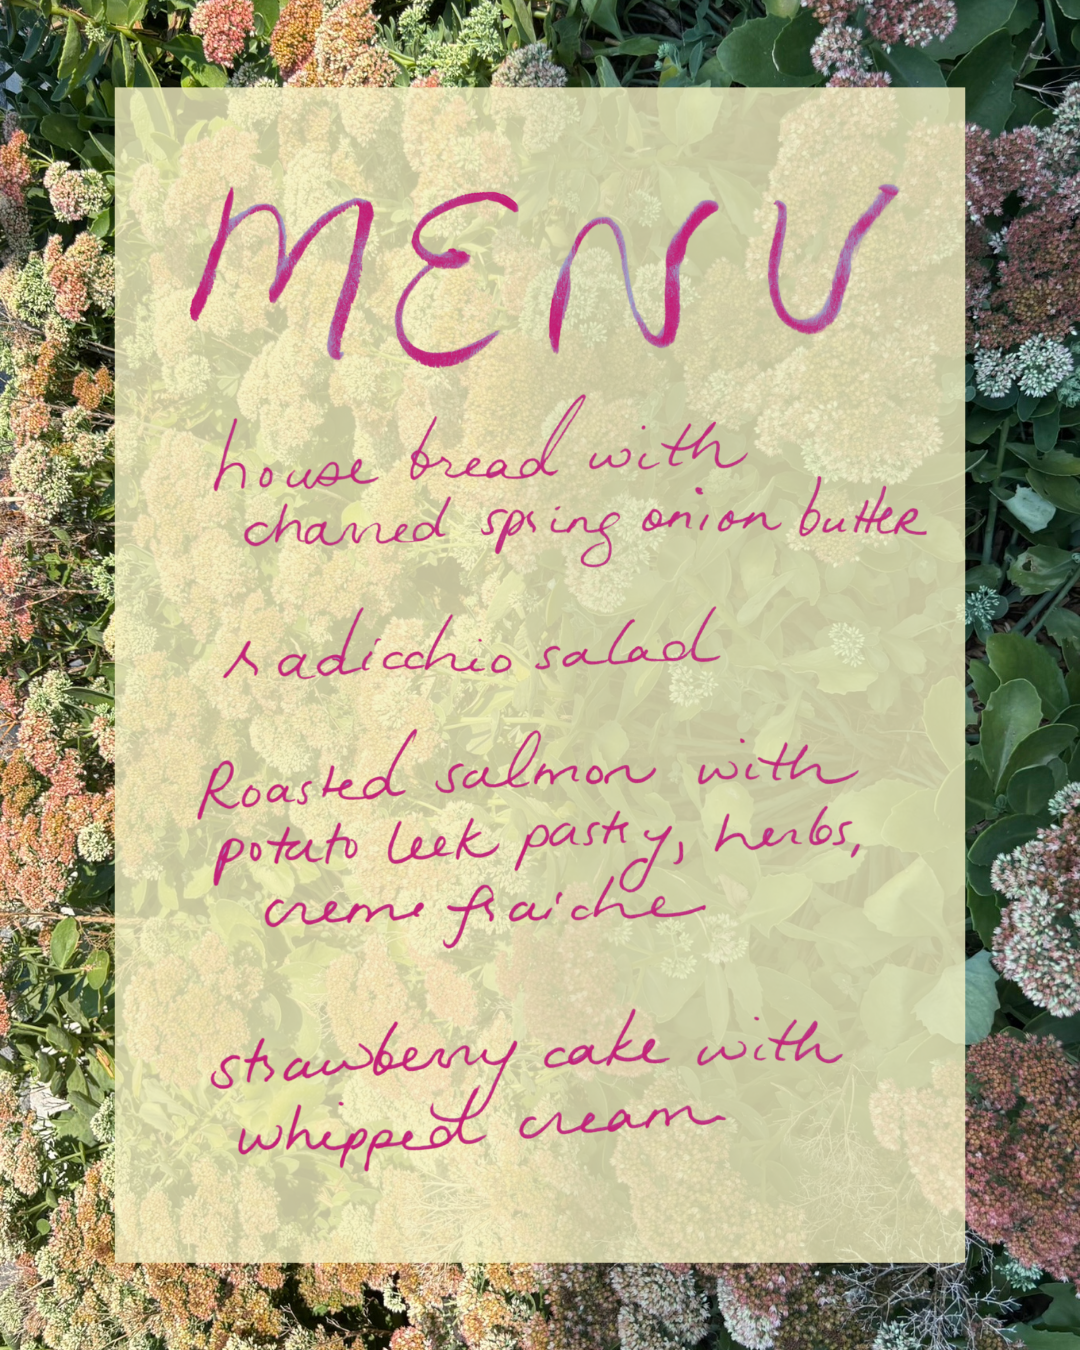 MENU
house bread with
charred spring onion butter
radicchio salad
Roasted salmon with
potato leek pastry, herbs,
creme fraiche
strawberry cake with
whipped cream